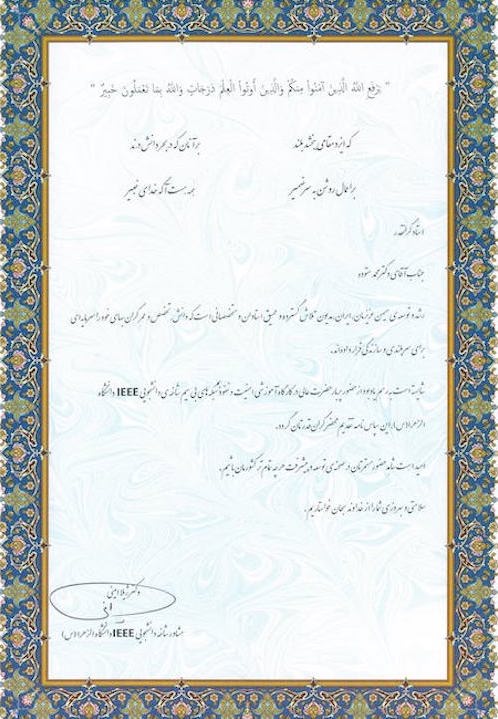 " يَرْفَعِ اللَّهُ الَّذِينَ آمَنُواْ مِنكُمْ وَالَّذِينَ أُوتُواْ الْعِلْمَ دَرَجَاتٍ وَاللَّهُ بِمَا تَعْمَلُونَ خَبِيرٌ "
که ایزد مقامی ببخشد بلند بر آنان که در بحر دانش درند
بر اعمال روشن به سر ضمیر همه هست آگه خدای خبیر
استاد گرانقدر
جناب آقای دکتر محمد ستوده
رشد و توسعه ی میهن عزیزمان، ایران مدیون تلاش گسترده و عمیق استادان و متخصصانی است که دانش، تخصص و عمر گران بهای خود را سرمایه ای
برای سربلندی و سازندگی قرار داده اند.
شایسته است به رسم یادبود از حضور پربار حضرت عالی در کارگاه آموزشی امنیت و نفوذ شبکه های بی سیم شاخه ی دانشجویی IEEE دانشگاه
الزهرا(س)، این سپاس نامه تقدیم محضر گران قدرتان گردد.
امید است شاهد حضور مستمرتان در صحنه ی توسعه و پیشرفت هر چه تمام تر کشورمان باشیم.
سلامتی و بهروزی شما را از خداوند سبحان خواستاریم.
دکتر ژیلا امینی
مشاور شاخه دانشجویی IEEE دانشگاه الزهرا(س)